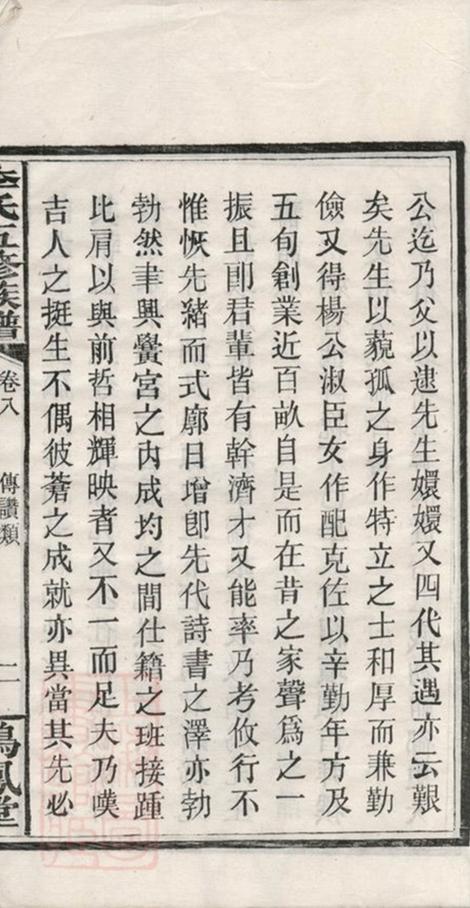 公迄乃父以逮先生嬛嬛又四代其遇亦云艱
矣先生以藐孤之身作特立之士和厚而兼勤
儉又得楊公淑臣女作配克佐以辛勤年方及
五旬創業近百畝自是而在昔之家聲爲之一
振且卽君輩皆有幹濟才又能率乃考攸行不
惟恢先猪而式廓日增卽先代詩書之澤亦勃
勃然聿興黌宮之內成均之間仕籍之班接踵
比肩以與前哲相輝映者又不一而足夫乃嘆
吉人之挺生不偶彼蒼之成就亦異當其先必
氏五修族譜
卷八
傳讚類
二
鳴鳳堂